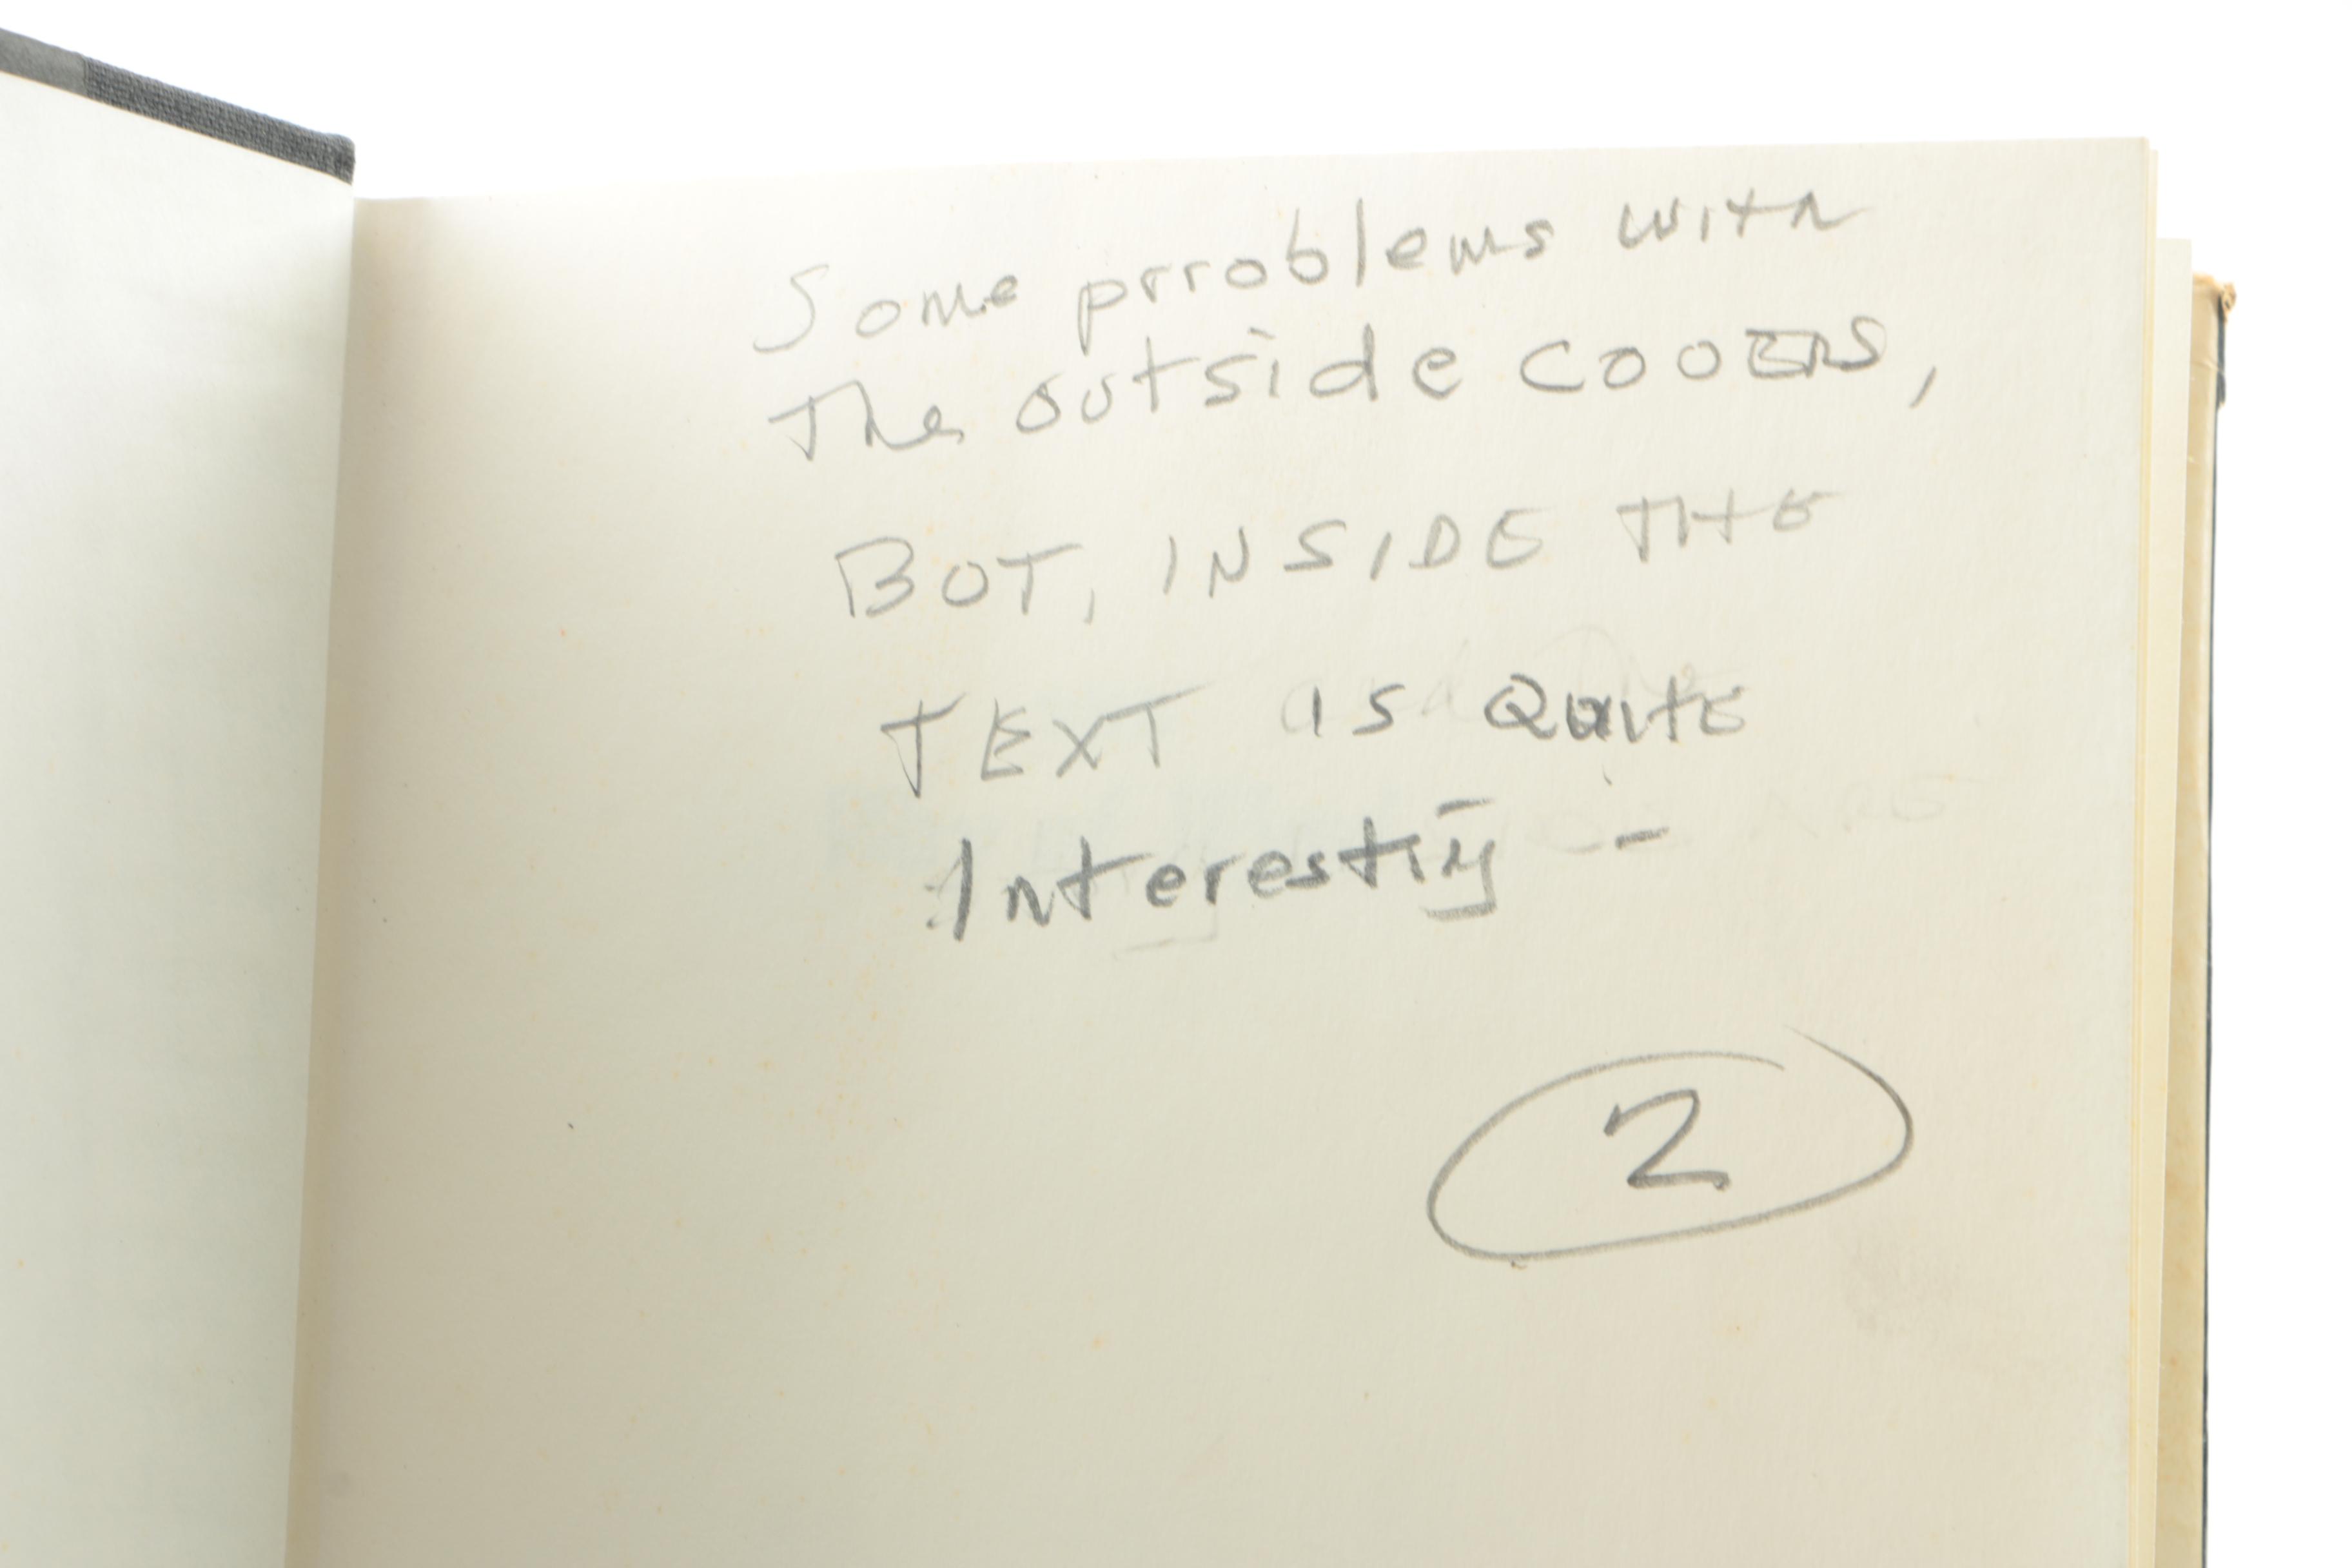 Some prroblems with
The outside cooers,
BOT, INSIDE THE
TEXT is Quite
Interesting -
2